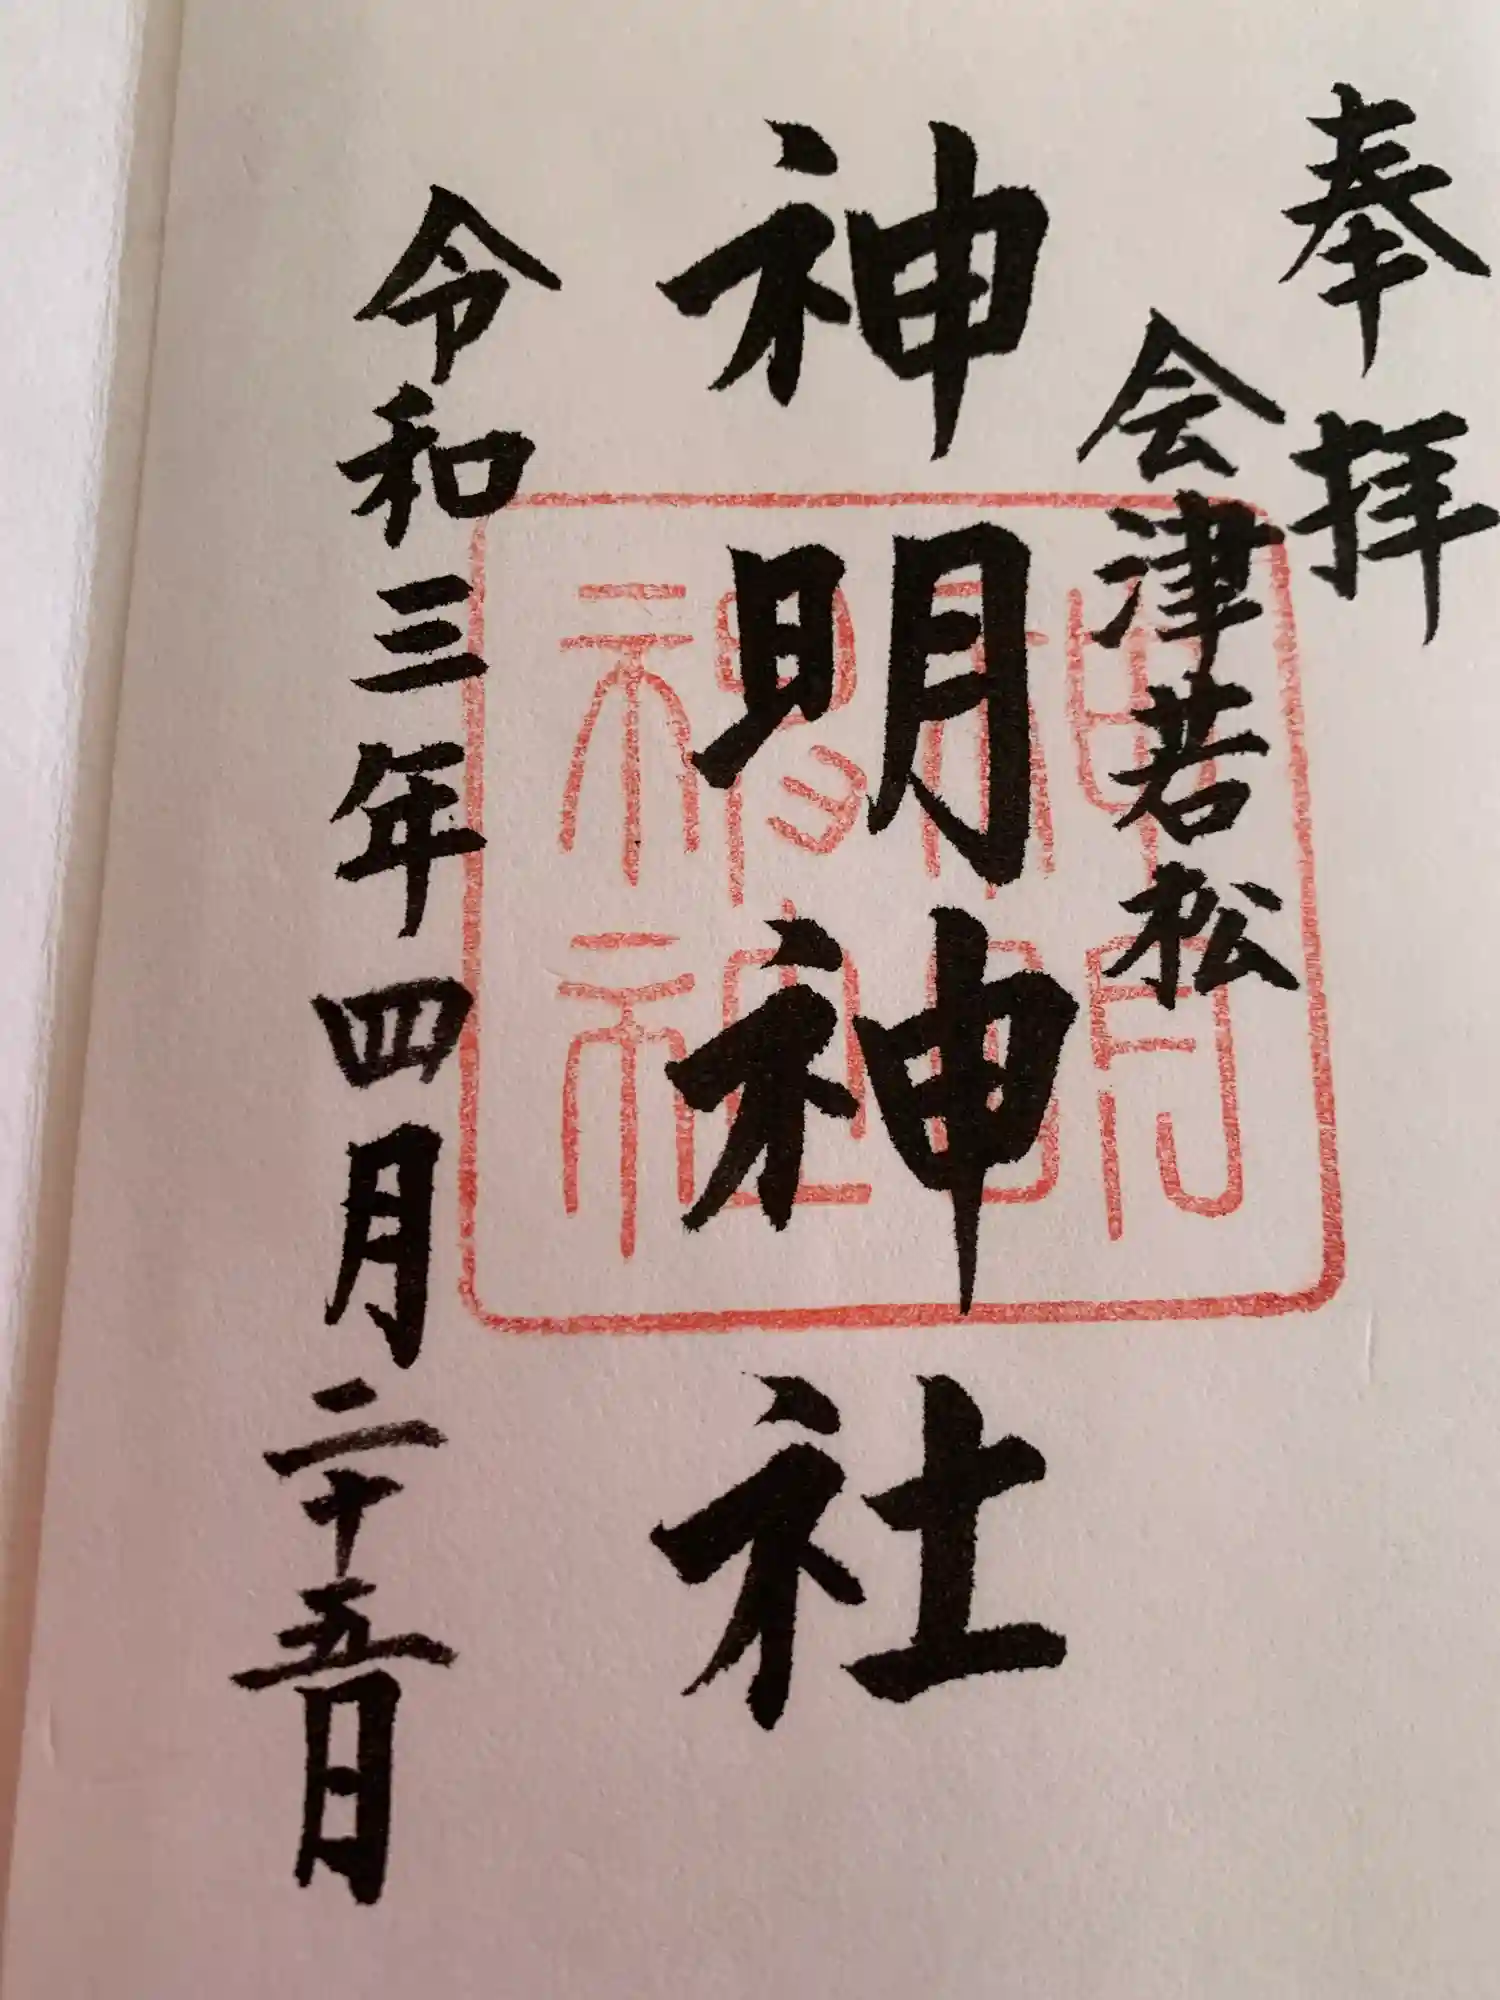 奉拝
会津若松
神明神社
令和三年四月二十五日
神明神社